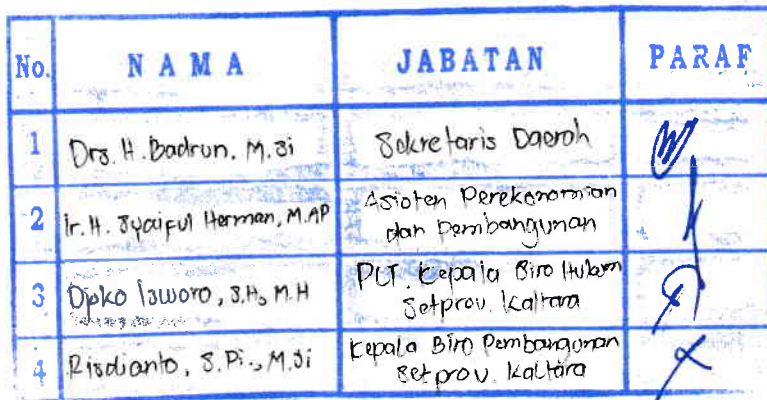 No. NAMA JABATAN PARAF
1 Drs. H. Badrun. M.Si Sekretaris Daerah
2 Ir. H. Syaiful Herman, M.AP Asisten Perekonomian
dan Pembangunan
3 Djoko Isworo, S.H, M.H PLT. Kepala Biro Hukum
Setprov. Kaltara
4 Risdianto, S.Pi., M.Si Kepala Biro Pembangunan
Setprov. Kaltara